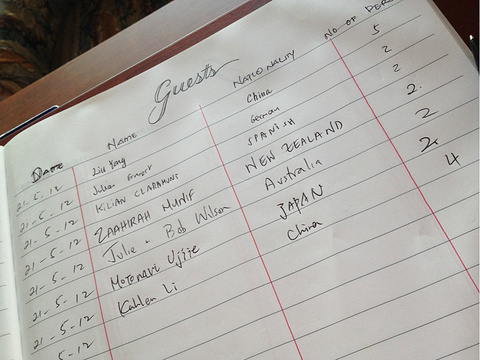 Guests
DATE NAME NATIONALITY NO-OF PER
21-5-12 Liu Yang China 5
21-5-12 Julian German 2
21-5-12 KILIAN SPANISH 2
21-5-12 ZAAHIRAH MUNIF NEW ZEALAND 2.
21-5-12 Julie + Bob Wilson Australia 2
21-5-12 Motonari Ujiie JAPAN 2
21-5-12 Kahlen Li China 4
5-12